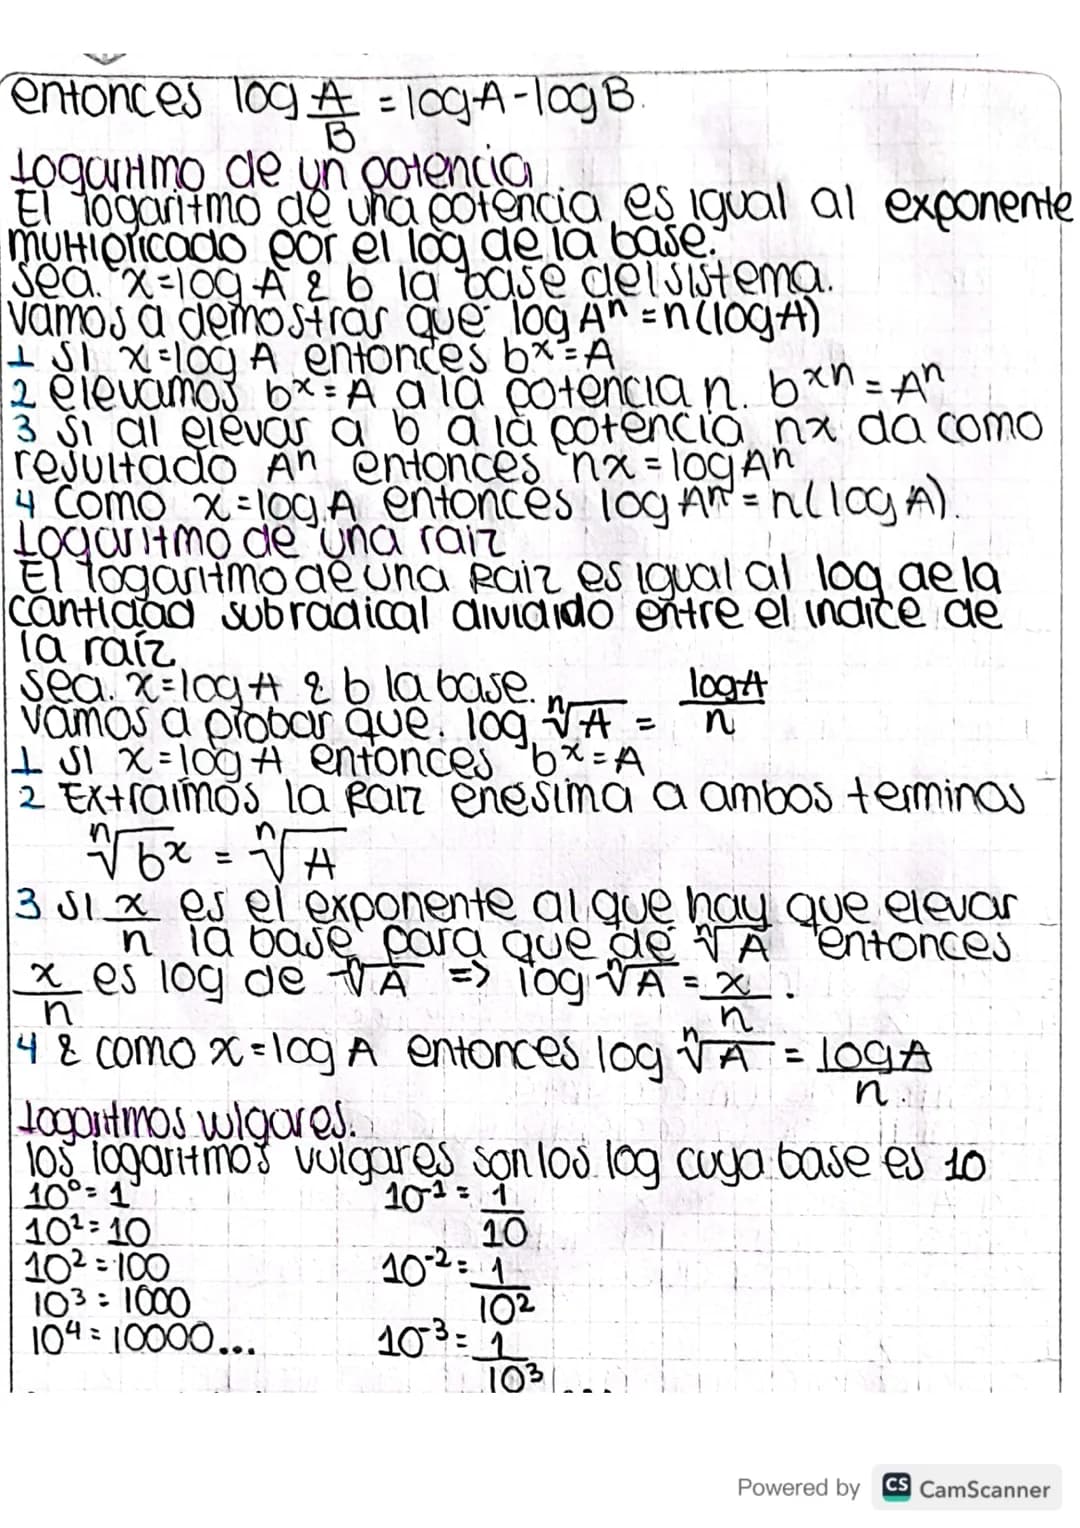 entonces log A/B = logA - logB.
Logaritmo de un potencia
El logaritmo de una potencia es igual al exponente
multiplicado por el log de la base.
Sea. x=log A & b la base del sistema.
Vamos a demostrar que log Aⁿ = n(logA)
1 Si x=log A entonces bˣ=A
2 elevamos bˣ=A a la potencia n. bˣⁿ = Aⁿ
3 Si al elevar a b a la potencia nx da como
resultado Aⁿ entonces nx = log Aⁿ
4 Como x=log A entonces log Aⁿ = n(log A).
Logaritmo de una raiz
El logaritmo de una Raiz es igual al log de la
cantidad subradical dividido entre el indice de
la raíz
Sea. x=log A & b la base.
Vamos a probar que. log ⁿ√A = logA/n
1 Si x=log A entonces bˣ=A
2 Extraímos la Raiz enesima a ambos terminos
ⁿ√bˣ = ⁿ√A
3 Si x/n es el exponente al que hay que elevar
la base para que de ⁿ√A entonces
x/n es log de ⁿ√A => log ⁿ√A = x/n.
4 & como x=log A entonces log ⁿ√A = logA/n.
Logaritmos vulgares.
los logaritmos vulgares son los log cuya base es 10
10⁰=1 10⁻¹ = 1/10
10¹=10
10²=100 10⁻² = 1/10²
10³=1000
10⁴=10000... 10⁻³ = 1/10³ ...
Powered by CS CamScanner